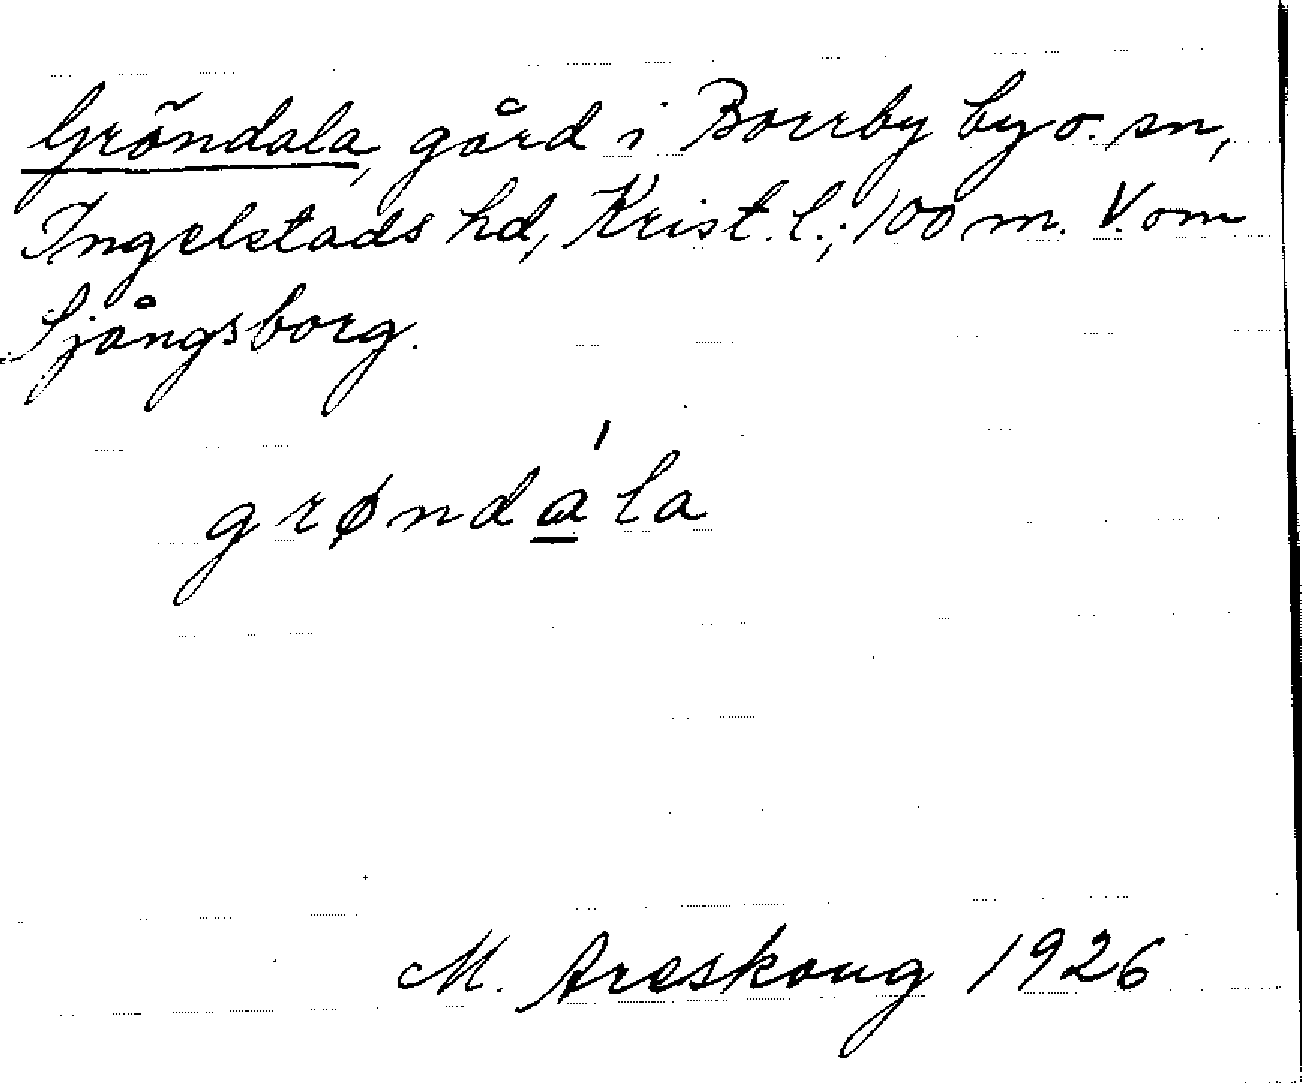 Gröndala, gård i Borrby by o. sn,
Ingelstads hd, Krist. l.; 100 m. V. om
Sjångsborg.
grøndá̲la
M. Areskoug 1926